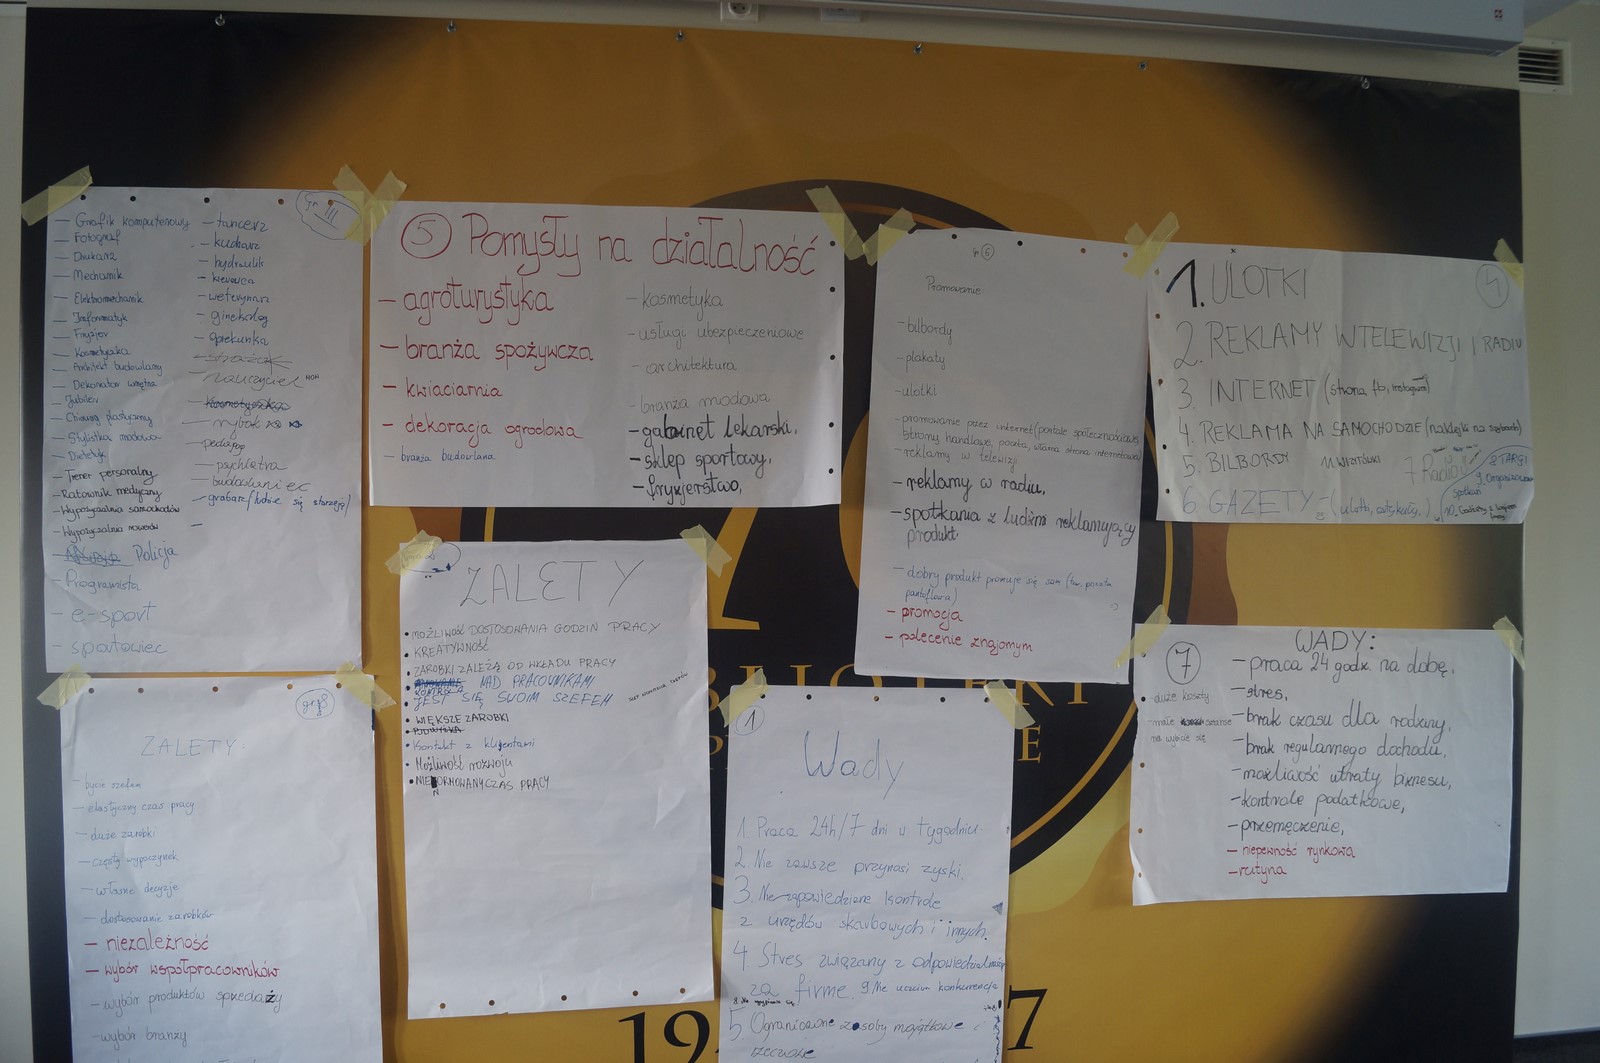 Gr III
— Grafik komputerowy
— Fotograf
— Drukarz
— Mechanik
— Elektromechanik
— Informatyk
— Fryzjer
— Kosmetyczka
— Architekt budowlany
— Dekorator wnętrz
— Jubiler
— Chirurg plastyczny
— Stylistka modowa
— Dietetyk
— Trener personalny
— Ratownik medyczny
— Wypożyczalnia samochodów
— Wypożyczalnia rowerów
— Policja
— Programista
— e-sport
— sportowiec
— tancerz
— kucharz
— hydraulik
— kierowca
— weterynarz
— ginekolog
— opiekunka
— strażak
— nauczyciel
— kosmetyczka
— rybak
— pedagog
— psychiatra
— budowlaniec
— grabarz (ludzie się starzeją)
—
5 Pomysły na działalność
— agroturystyka
— branża spożywcza
— kwiaciarnia
— dekoracja ogrodowa
— branża budowlana
— kosmetyka
— usługi ubezpieczeniowe
— architektura
— branża modowa
— gabinet lekarski,
— sklep sportowy,
— fryzjerstwo,
gr 6
Promowanie
— bilbordy
— plakaty
— ulotki
— promowanie przez internet (portale społecznościowe,
strony handlowe, poczta, własna strona internetowa)
— reklamy w telewizji
— reklamy w radiu,
— spotkania z ludźmi reklamujący
produkt
— dobry produkt promuje się sam (tzw. poczta
pantoflowa)
— promocja
— polecenie znajomym
4
1. ULOTKI
2. REKLAMY W TELEWIZJI I RADIU
3. INTERNET (strona, fb, instagram)
4. REKLAMA NA SAMOCHODZIE (naklejki na szybach)
5. BILBORDY 11 WIZYTÓWKI 7 Radio 8 TARGI
9. Organizowanie
spotkań
6 GAZETY – (ulotki, artykuły,)
10.
ZALETY
• MOŻLIWOŚĆ DOSTOSOWANIA GODZIN PRACY
• KREATYWNOŚĆ
• ZAROBKI ZALEŻĄ OD WKŁADU PRACY
• KONTROLA NAD PRACOWNIKAMI
• JEST SIĘ SWOIM SZEFEM
• WIĘKSZE ZAROBKI
• Kontakt z klientami
• Możliwość rozwoju
• NIENORMOWANY CZAS PRACY
gr 8
ZALETY:
— bycie szefem
— elastyczny czas pracy
— duże zarobki
— częsty wypoczynek
— własne decyzje
— dostosowanie zarobków
— niezależność
— wybór współpracowników
— wybór produktów sprzedaży
— wybór branży
1
Wady
1. Praca 24h/7 dni w tygodniu.
2. Nie zawsze przynosi zyski.
3. Niezapowiedziane kontrole
z urzędów skarbowych i innych.
4 Stres związany z odpowiedzialnością
za firmę. 9 Nie uczciwa konkurencja
5. Ograniczone zasoby majątkowe i
rzeczowe
7
WADY:
— praca 24 godz. na dobę,
— stres,
— brak czasu dla rodziny,
— brak regularnego dochodu,
— możliwość utraty biznesu,
— kontrole podatkowe,
— przemęczenie,
— niepewność rynkowa
— rutyna
— duże koszty
— małe szanse
na wybicie się
BIBLIOTEKI
19 7